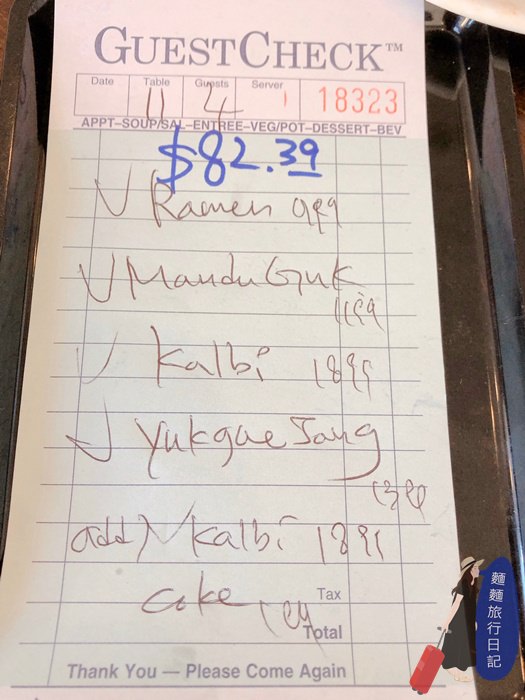 GUESTCHECK™
Date Table Guests Server
11 4 18323
APPT–SOUP/SAL–ENTREE–VEG/POT–DESSERT–BEV
$82.39
Ramen 999
Mandu Guk
1199
Kalbi 1899
Yukgae Jang
1399
add) Kalbi 1899
Coke
Tax
Total
Thank You — Please Come Again
麵麵旅行日記